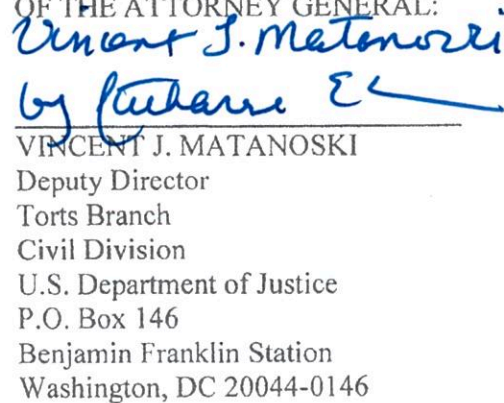 OF THE ATTORNEY GENERAL:
Vincent J. Matanoski
by
VINCENT J. MATANOSKI
Deputy Director
Torts Branch
Civil Division
U.S. Department of Justice
P.O. Box 146
Benjamin Franklin Station
Washington, DC 20044-0146